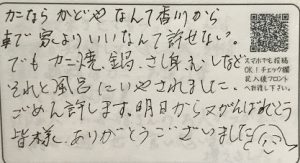 カニなら かどや なんて香川から
車で 家よりいいなんて許せない。
でも カニ焼、鍋、さし身、むしなど
それと風呂にいやされました。
ごめん許します。明日から又がんばれそう
皆様、ありがとうございました
スマホでも投稿
OK！チェック欄
記入後フロント
へお渡し下さい。